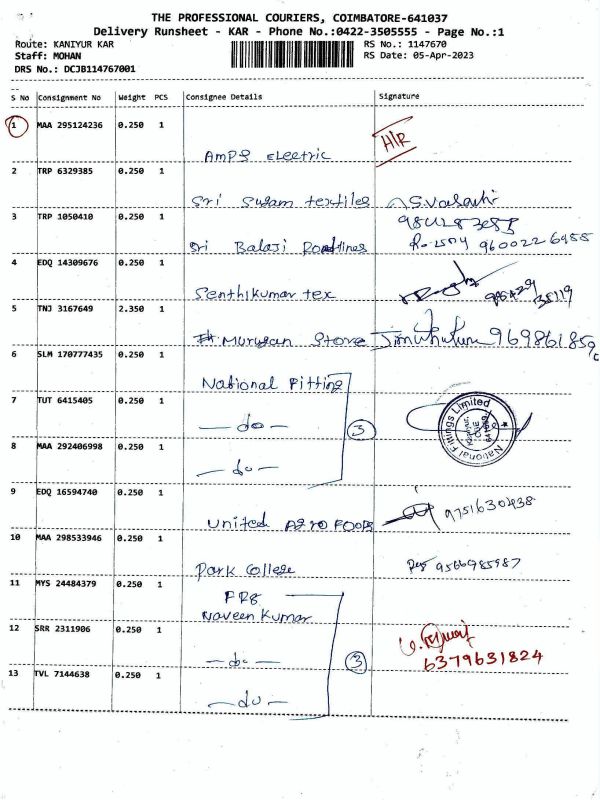 THE PROFESSIONAL COURIERS, COIMBATORE-641037
Delivery Runsheet - KAR - Phone No.:0422-3505555 - Page No.:1
Route: KANIYUR KAR RS No.: 1147670
Staff: MOHAN RS Date: 05-Apr-2023
DRS No.: DCJB114767001
S No Consignment No Weight PCS Consignee Details Signature
1 MAA 295124236 0.250 1 H/R
Amps Electric
2 TRP 6329385 0.250 1
Sri Suram textiles
3 TRP 1050410 0.250 1
Sri Balaji Roadlines 9600226955
4 EDQ 14309676 0.250 1
Senthikumar tex
5 TNJ 3167649 2.350 1
Murugan Store 969861859
6 SLM 170777435 0.250 1
National Fitting
7 TUT 6415405 0.250 1
-do- 3 National Fittings Limited
8 MAA 292406998 0.250 1
-do-
9 EDQ 16594740 0.250 1
United Agro Foods 9751630438
10 MAA 298533946 0.250 1
Park College 9566985987
11 MYS 24484379 0.250 1
PRG
Naveen Kumar
12 SRR 2311906 0.250 1
-do- 3 6379631824
13 TVL 7144638 0.250 1
-do-